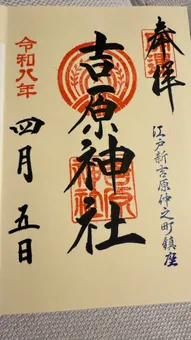 奉拝
江戸新吉原仲之町鎮座
吉原神社
令和八年
四月五日